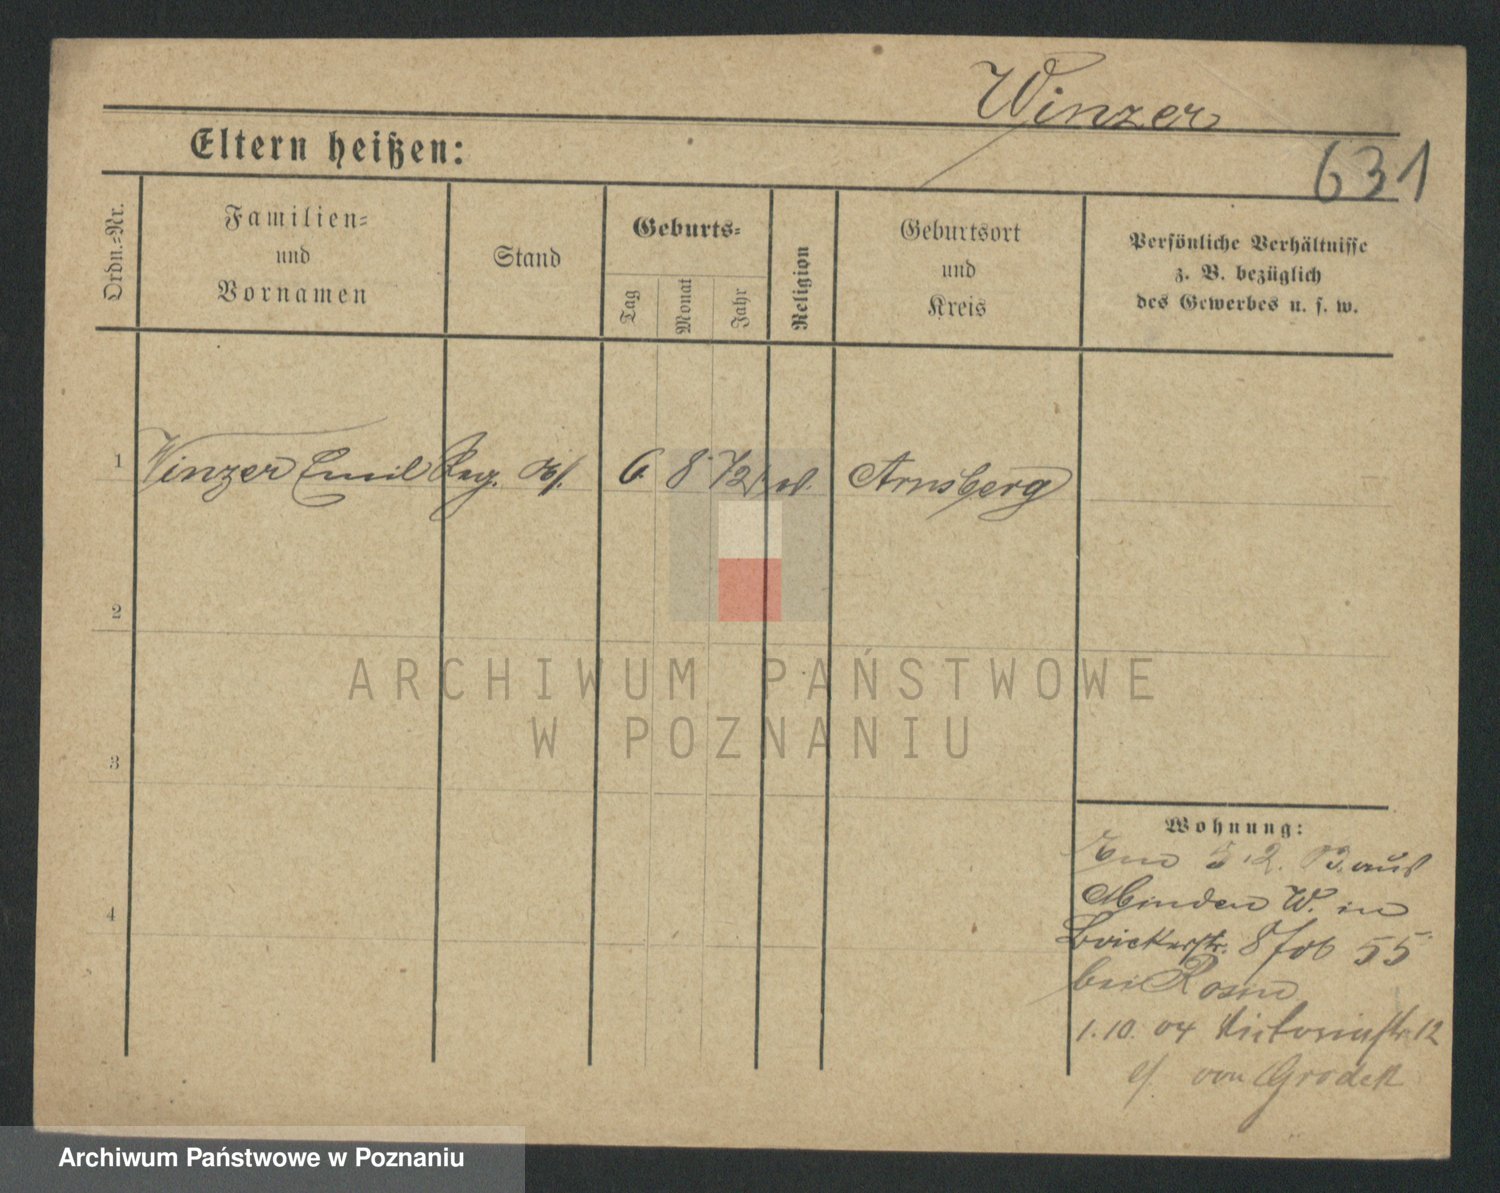 Winzer
631
Eltern heißen:
Ordn.=Nr.
Familien=
und
Vornamen
Stand
Geburts=
Tag
Monat
Jahr
Religion
Geburtsort
und
Kreis
Persönliche Verhältnisse
z. B. bezüglich
des Gewerbes u. s. w.
1 Winzer Emil Reg. 6. 8. 72. Arnsberg
2
3
4
ARCHIWUM PAŃSTWOWE
W POZNANIU
Wohnung:
5.2. 03. aus
Minden W. in
55
bei
1.10. 04 Victoriastr. 12
von Grodek
Archiwum Państwowe w Poznaniu